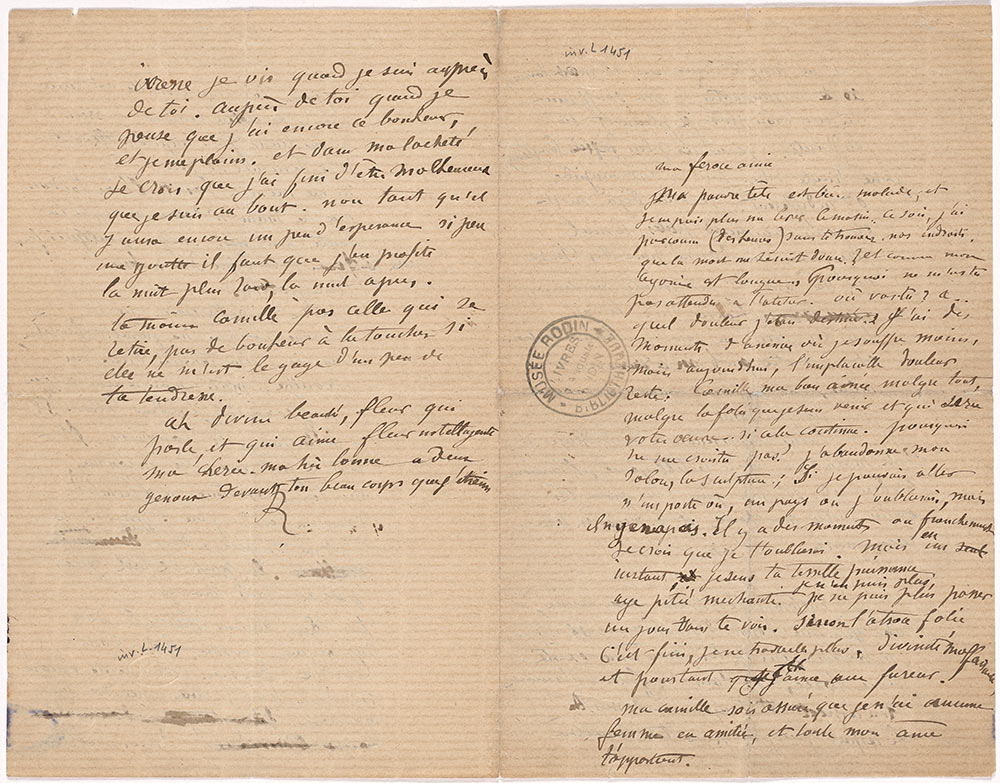 inv. L. 1451
ma feroce amie
Ma pauvre tête est bien malade, et
je ne puis plus me lever le matin. Ce soir, j'ai
parcouru (des heures) sans te trouver nos endroits.
que la mort me serait douce, et comme mon
agonie est longue. Pourquoi ne m'as tu
pas attendu à l'atelier. où vas tu?
quel douleur j'etais destiné. J'ai des
moments d'amnésie où je souffre moins,
mais aujourdhui, l'implacable douleur
reste. Camille ma bien aimée malgre tout,
malgre la folie que je sens venir et qui sera
votre oeuvre. si cela continue. pourquoi
ne me crois tu pas? j'abandonne mon
Salon, la sculpture; Si je pouvais aller
n'importe où, un pays où j'oublierai, mais
il n'y en a pas. il y a des moments ou franchement
je crois que je t'oublierai. Mais en un seul
instant, je sens ta terrible puissance
aye pitié mechante. je n'en puis plus,
je ne puis plus passer
un jour sans te voir. Sinon l'atroce folie
C'est fini, je ne travaille plus, Divinité malfaisante,
et pourtant je t'aime avec fureur.
ma Camille sois assurée que je n'ai aucune
femme en amitié, et toute mon ame
t'appartient.
MUSÉE RODIN
ivresse je vis quand je suis auprès
de toi. auprès de toi quand je
pense que j'ai encore ce bonheur,
et je me plains. et dans ma lacheté
je crois que j'ai fini d'être malheureux
que je suis au bout. non tant qu'il
y aura encore un peu d'esperance si peu
une goutte il faut que j'en profite
la nuit plus tard, la nuit apres.
ta main Camille pas celle qui se
retire, pas de bonheur à la toucher si
elle ne m'est le gage d'un peu de
ta tendresse.
ah divine beauté, fleur qui
parle, et qui aime fleur intelligente
ma chérie. ma très bonne à deux
genoux devant ton beau corps que j'étreins
R
inv. L. 1451